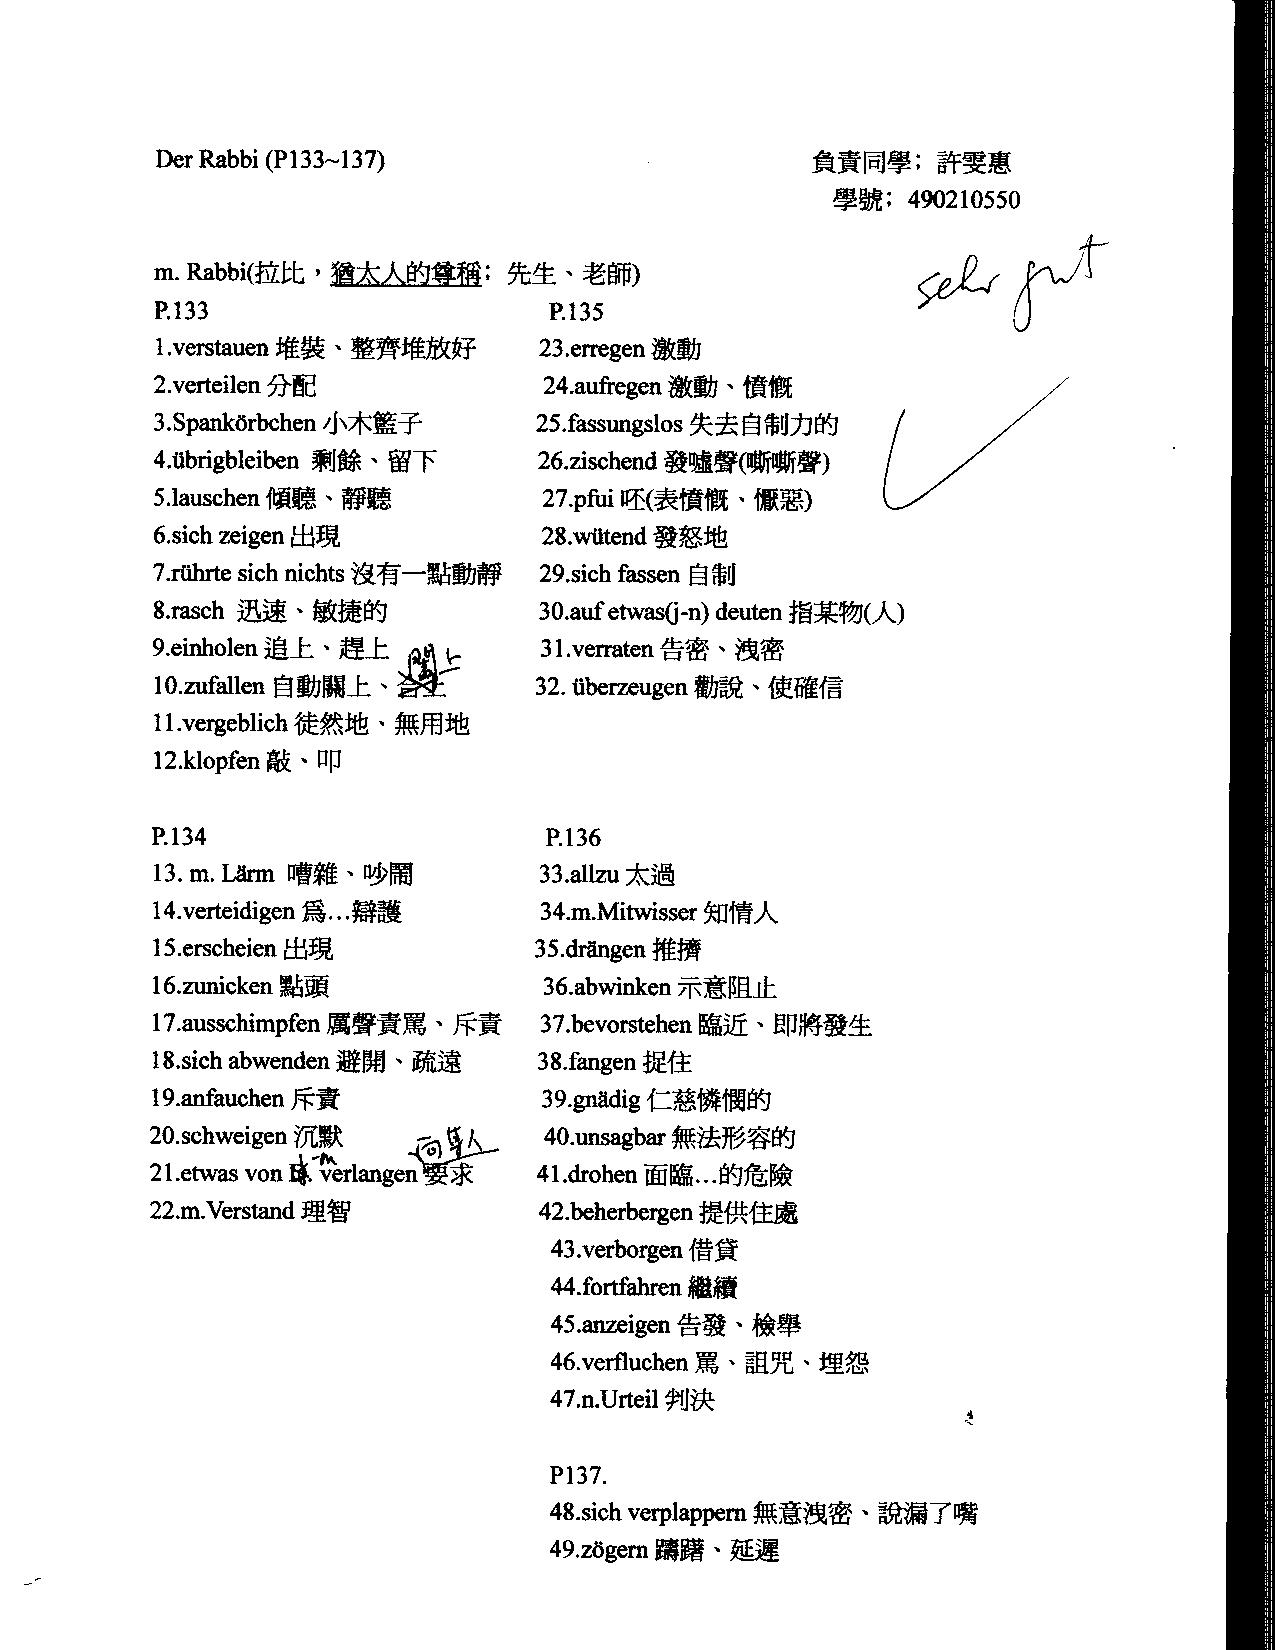 Der Rabbi (P133~137)
負責同學; 許雯惠
學號; 490210550
m. Rabbi(拉比，猶太人的尊稱; 先生、老師)
sehr gut
P.133
1.verstauen 堆裝、整齊堆放好
2.verteilen 分配
3.Spankörbchen 小木籃子
4.übrigbleiben 剩餘、留下
5.lauschen 傾聽、靜聽
6.sich zeigen 出現
7.rührte sich nichts 沒有一點動靜
8.rasch 迅速、敏捷的
9.einholen 追上、趕上
10.zufallen 自動關上、
關上
11.vergeblich 徒然地、無用地
12.klopfen 敲、叩
P.134
13. m. Lärm 嘈雜、吵鬧
14.verteidigen 爲…辯護
15.erscheien 出現
16.zunicken 點頭
17.ausschimpfen 厲聲責罵、斥責
18.sich abwenden 避開、疏遠
19.anfauchen 斥責
20.schweigen 沉默
向某人
21.etwas von j-m verlangen 要求
22.m.Verstand 理智
P.135
23.erregen 激動
24.aufregen 激動、憤慨
25.fassungslos 失去自制力的
26.zischend 發噓聲(嘶嘶聲)
27.pfui 呸(表憤慨、懨惡)
28.wütend 發怒地
29.sich fassen 自制
30.auf etwas(j-n) deuten 指某物(人)
31.verraten 告密、洩密
32. überzeugen 勸說、使確信
P.136
33.allzu 太過
34.m.Mitwisser 知情人
35.drängen 推擠
36.abwinken 示意阻止
37.bevorstehen 臨近、即將發生
38.fangen 捉住
39.gnädig 仁慈憐憫的
40.unsagbar 無法形容的
41.drohen 面臨…的危險
42.beherbergen 提供住處
43.verborgen 借貸
44.fortfahren 繼續
45.anzeigen 告發、檢舉
46.verfluchen 罵、詛咒、埋怨
47.n.Urteil 判決
P137.
48.sich verplappern 無意洩密、說漏了嘴
49.zögern 躊躇、延遲